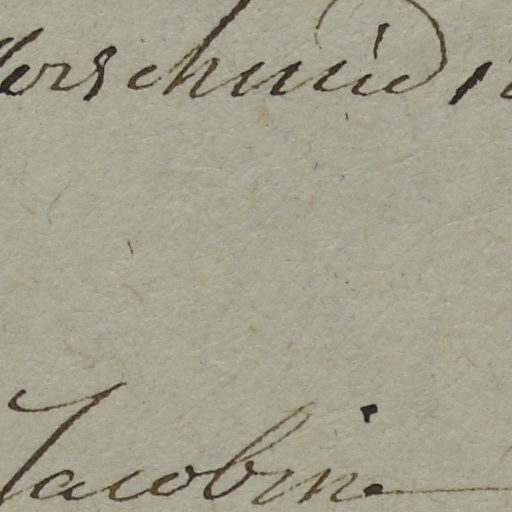 erschmid,
Jacobine